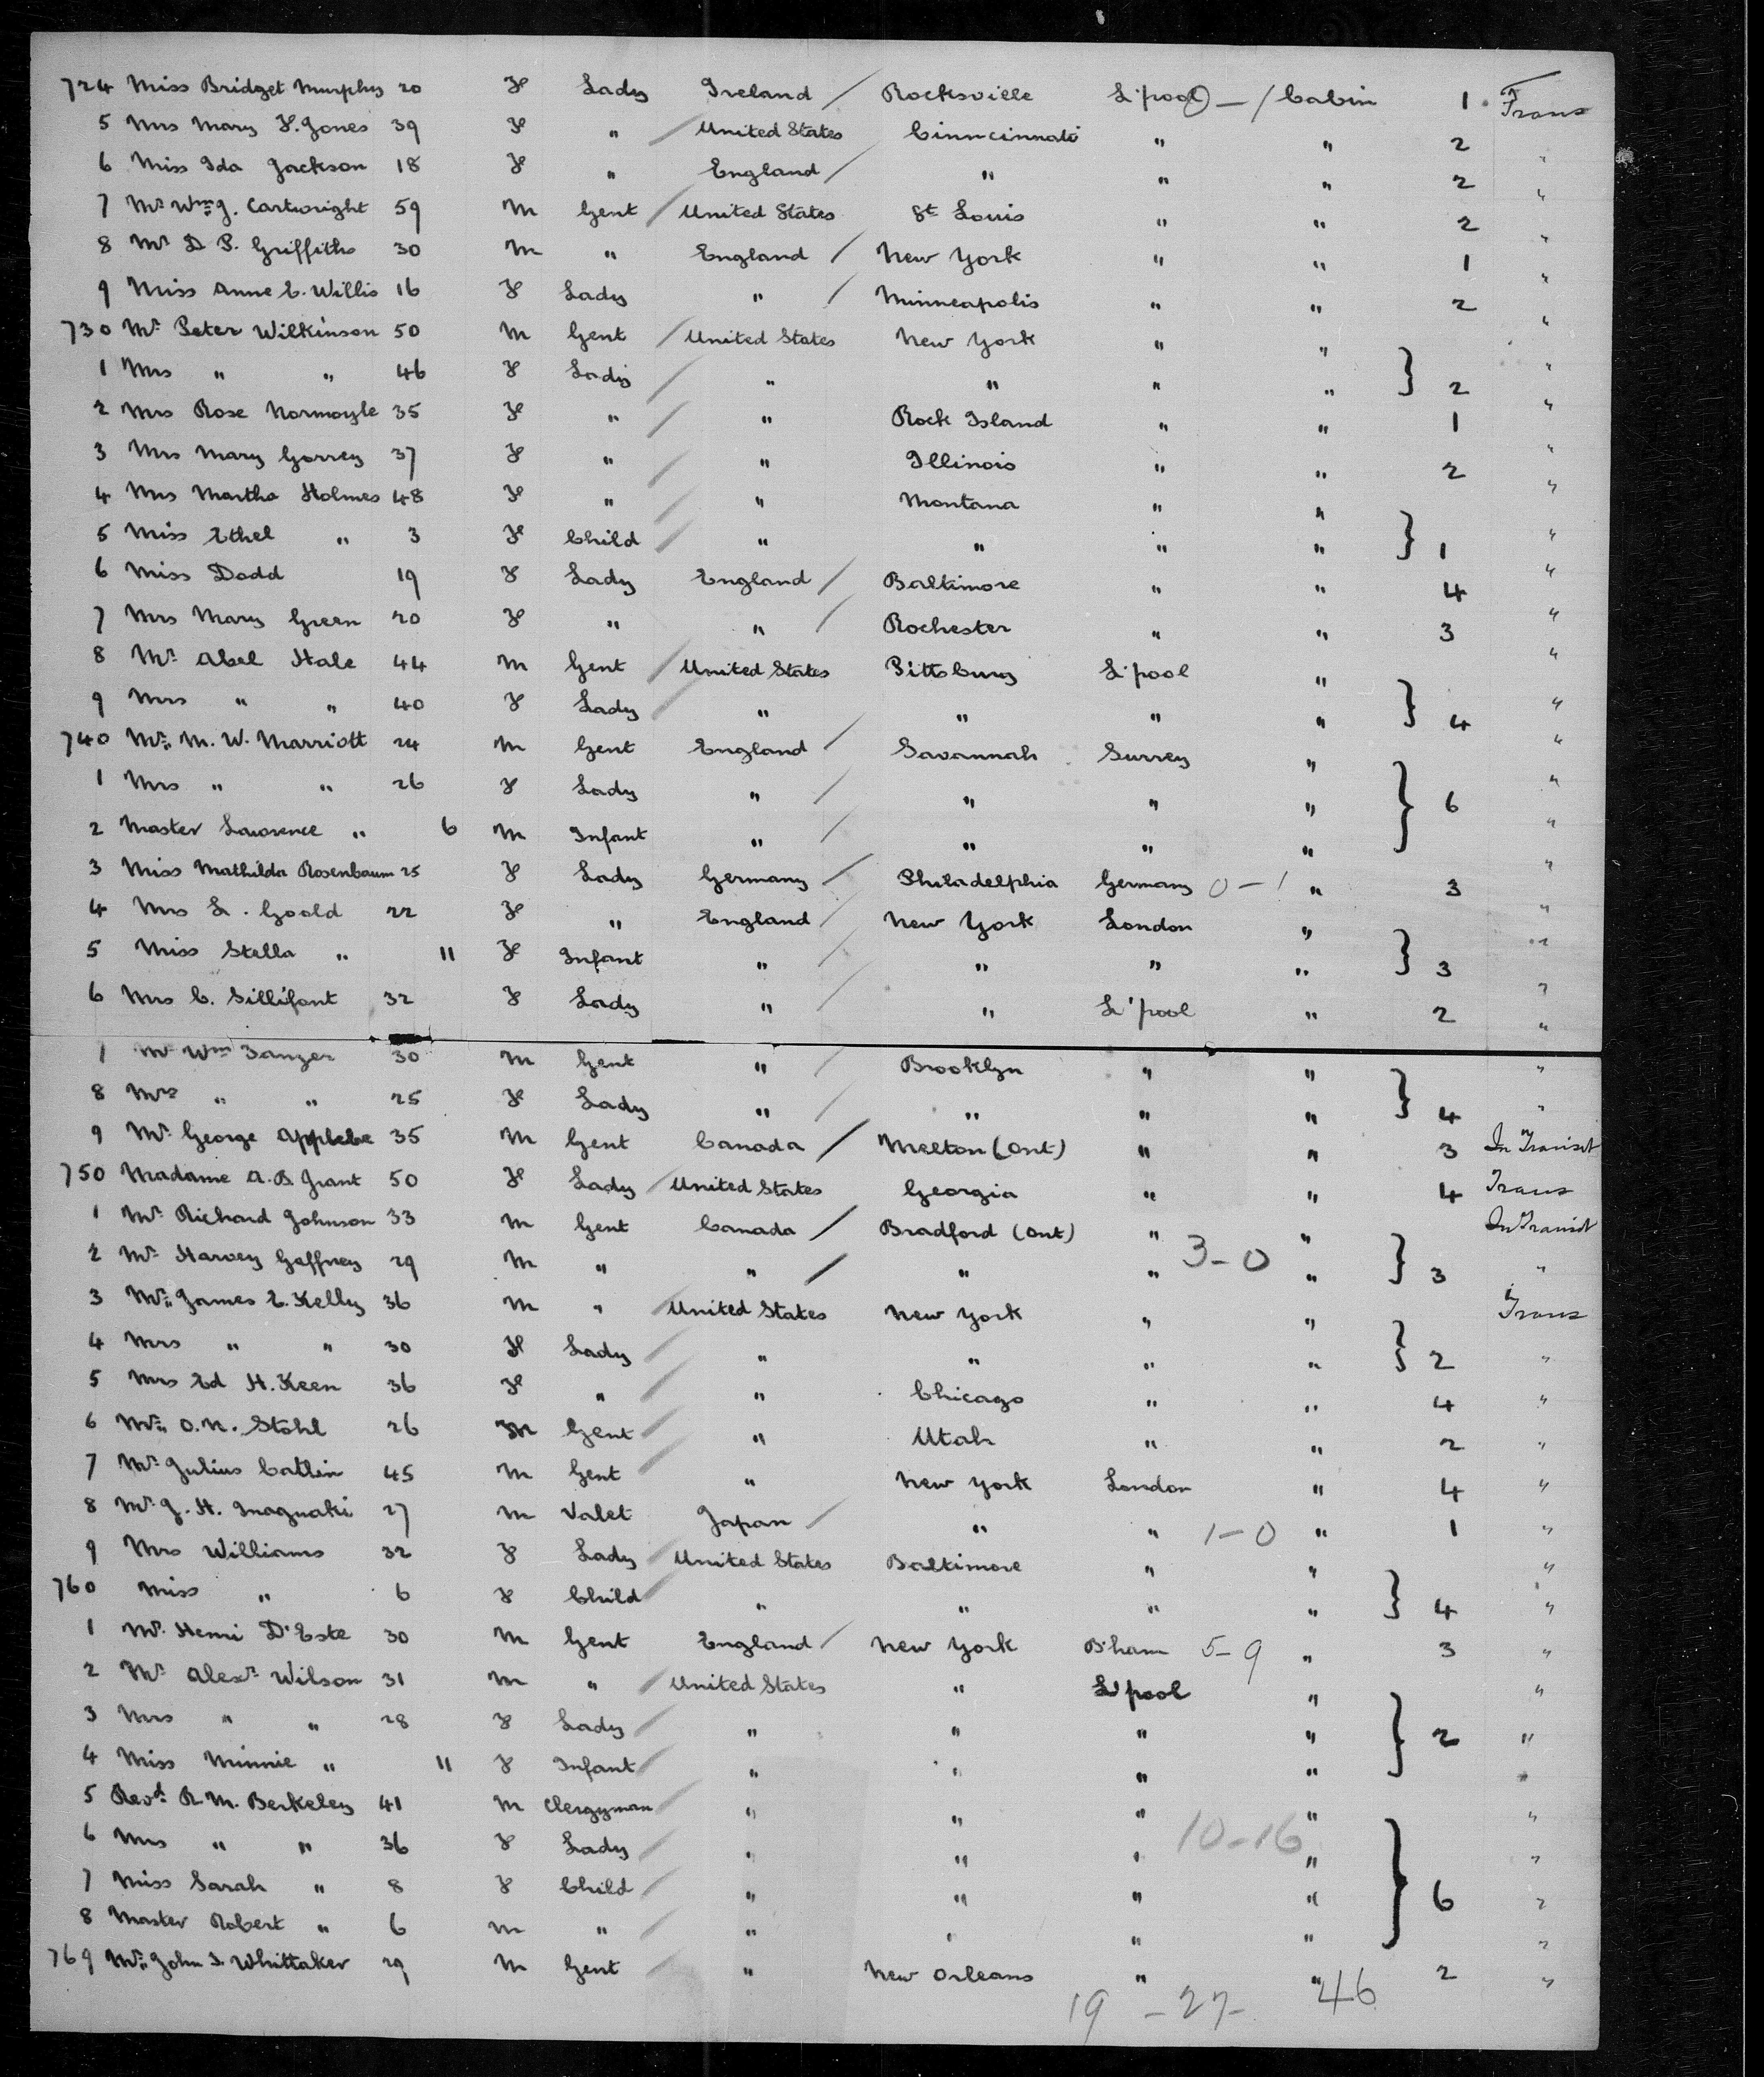 724 Miss Bridget Murphy 20 F Lady Ireland / Rocksville L'pool 0 — 1 Cabin 1 Trans
5 Mrs Mary F. Jones 39 F " / United States Cinncinnati " " 2 "
6 Miss Ida Jackson 18 F " England / " " " 2 "
7 Mr Wm J. Cartwright 59 M Gent / United States St Louis " " 2 "
8 Mr D P. Griffiths 30 M " England / New York " " 1 "
9 Miss Anne E. Willis 16 F Lady " / Minneapolis " " 2 "
730 Mr Peter Wilkinson 50 M Gent / United States New York " " "
1 Mrs " " 46 F Lady / " " " " } 2 "
2 Mrs Rose Normoyle 35 F " / " Rock Island " " 1 "
3 Mrs Mary Gorrey 37 F " / " Illinois " " 2 "
4 Mrs Martha Holmes 48 F " / " Montana " " "
5 Miss Ethel " 3 F Child / " " " " } 1 "
6 Miss Dodd 19 F Lady England / Baltimore " " 4 "
7 Mrs Mary Green 20 F " " / Rochester " " 3 "
8 Mr Abel Hale 44 M Gent / United States Pittsburg L'pool " "
9 Mrs " " 40 F Lady / " " " " } 4 "
740 Mr M. W. Marriott 24 M Gent England / Savannah Surrey " "
1 Mrs " " 26 F Lady " / " " " } 6 "
2 Master Lawrence " 6 M Infant " / " " " "
3 Miss Mathilda Rosenbaum 25 F Lady Germany / Philadelphia Germany 0 - 1 " 3 "
4 Mrs L. Goold 22 F " England / New York London " "
5 Miss Stella " 11 F Infant " / " " " } 3 "
6 Mrs C. Sillifant 32 F Lady " / " L'pool " 2 "
7 Mr Wm Sanger 30 M Gent " / Brooklyn " " "
8 Mrs " " 25 F Lady " / " " " } 4 "
9 Mr George Applebe 35 M Gent Canada / Melton (Ont) " " 3 In Transit
750 Madame A. B. Grant 50 F Lady / United States Georgia " " 4 Trans
1 Mr Richard Johnson 33 M Gent Canada / Bradford (Ont) " " In Transit
2 Mr Harvey Gaffney 29 M " " / " " 3 - 0 " } 3 "
3 Mr James E. Kelly 36 M " / United States New York " " Trans
4 Mrs " " 30 F Lady / " " " " } 2 "
5 Mrs Ed H. Keen 36 F " / " Chicago " " 4 "
6 Mr O. N. Stohl 26 M Gent / " Utah " " 2 "
7 Mr Julius Catlin 45 M Gent / " New York London " 4 "
8 Mr J. H. Inagnaki 27 M Valet Japan / " " 1 - 0 " 1 "
9 Mrs Williams 32 F Lady / United States Baltimore " " "
760 Miss " 6 F Child / " " " " } 4 "
1 Mr Henri D'Este 30 M Gent England / New York B'ham 5 - 9 " 3 "
2 Mr Alexr Wilson 31 M " / United States " L'pool " "
3 Mrs " " 28 F Lady / " " " " } 2 "
4 Miss Minnie " 11 F Infant / " " " " "
5 Revd R. M. Berkeley 41 M Clergyman / " " " " "
6 Mrs " " 36 F Lady / " " " 10 - 16 " "
7 Miss Sarah " 8 F Child / " " " " } 6 "
8 Master Robert " 6 M " / " " " " "
769 Mr John S. Whittaker 29 M Gent / " New Orleans " " 2 "
19 - 27 - 46